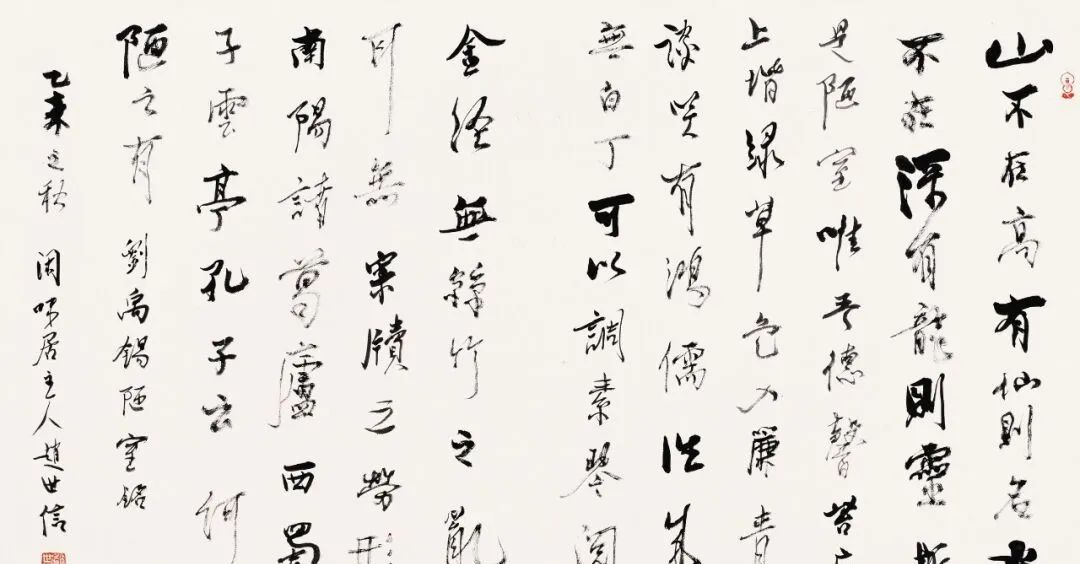 山不在高有仙則名水
不在深有龍則靈斯
是陋室唯吾德馨苔
上堦緑草色入簾青
談笑有鴻儒往來
無白丁可以調素琴閲
金経無絲竹之亂
耳無案牘之勞形
南陽諸葛廬西蜀
子雲亭孔子云何
陋之有 劉禹錫陋室銘
乙未之秋 閑味居主人趙世信